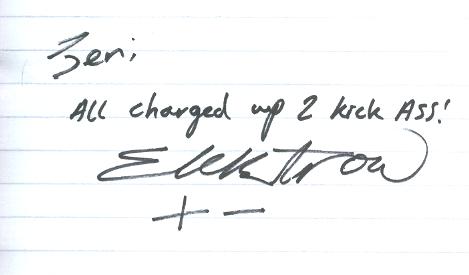 Zeri
All charged up 2 kick Ass!
Elektron
+ -